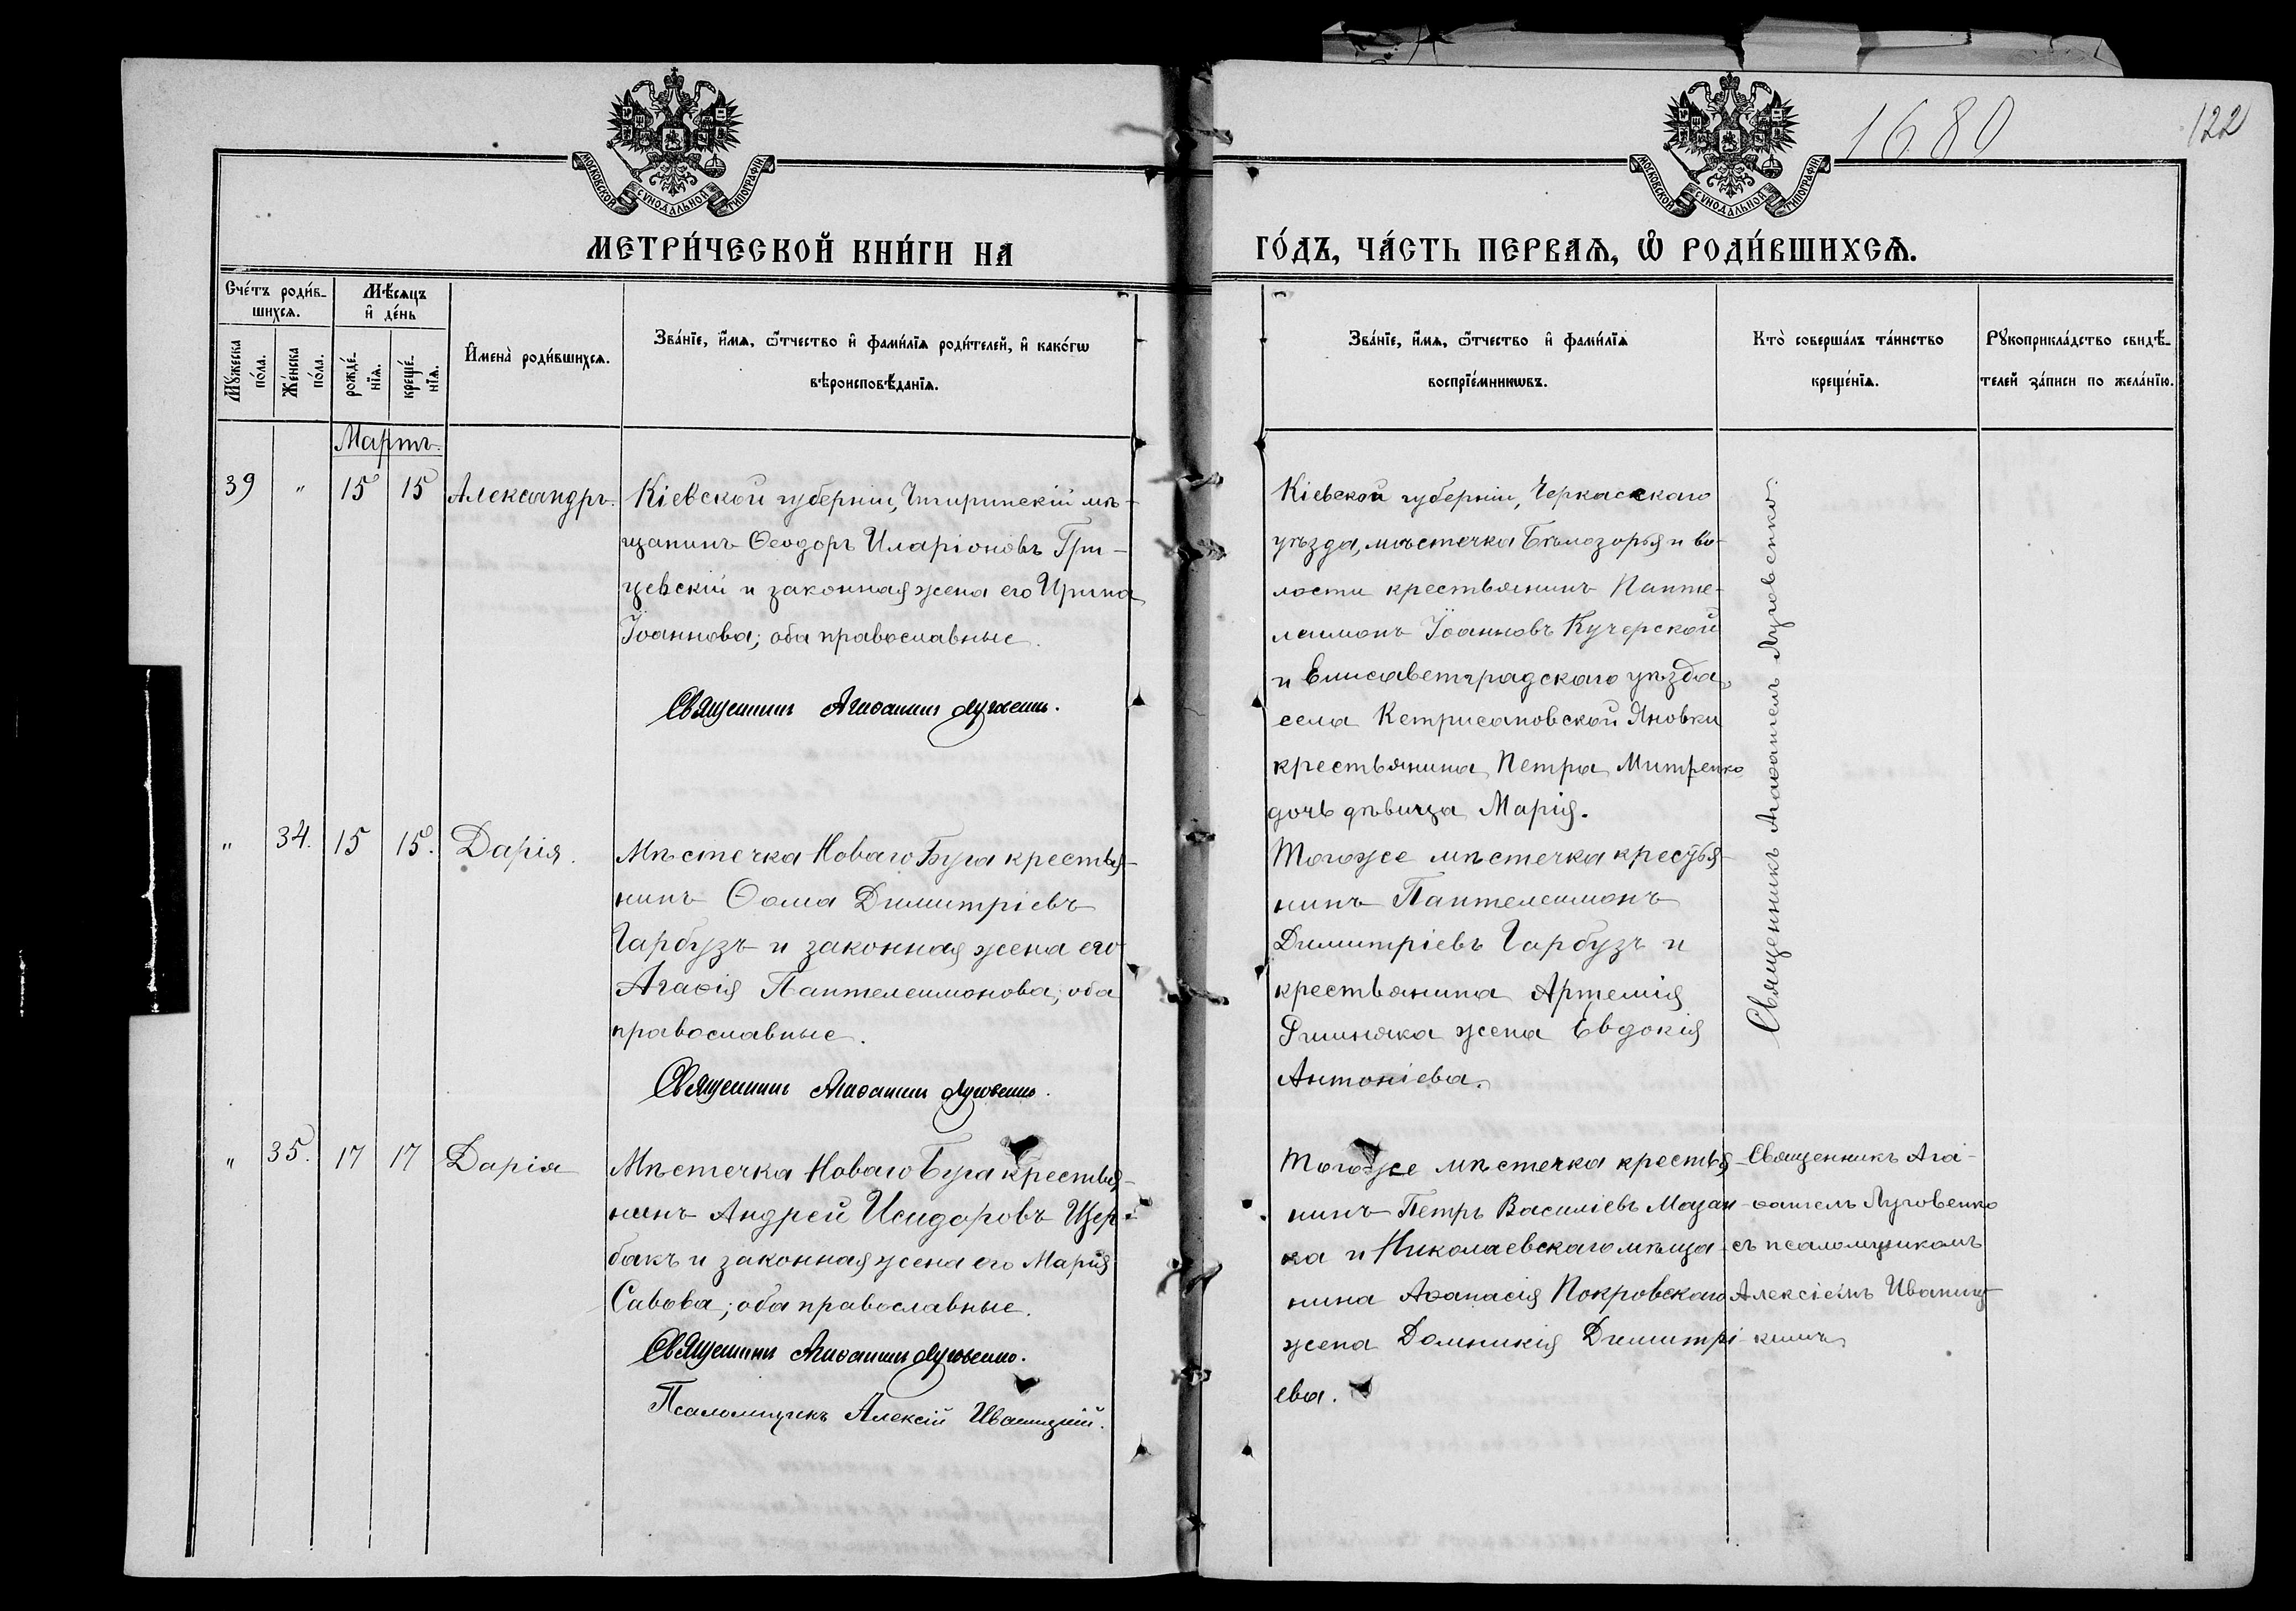 1680
122
МОСКОВСКОЙ СѴНОДАЛЬНОЙ ТИПОГРАФІИ
МОСКОВСКОЙ СѴНОДАЛЬНОЙ ТИПОГРАФІИ
МЕТРИ́ЧЕСКОЙ КНИ́ГИ НА
ГО́ДЪ, ЧА́СТЬ ПЕРВАѦ, Ѽ РОДИ́ВШИХСѦ.
Счéтъ роди́в-
шихсѧ.
Мѣ́сѧцъ
и҆ де́нь
Мꙋ́жеска
по́ла.
Же́нска
по́ла.
рожде́-
нїѧ.
креще́-
нїѧ.
И҆мена̀ роди́вшихсѧ.
Зва́нїе, и҆́мѧ, ѻ҆́тчество и҆ фами́лїѧ роди́телей, и҆ како́гѡ
вѣроисповѣ́данїѧ.
Зва́нїе, и҆́мѧ, ѻ҆́тчество и҆ фами́лїѧ
воспрїе́мникѡвъ.
Кто̀ соверша́лъ та́инство
креще́нїѧ.
Рꙋкоприкла́дство свидѣ́-
телей за́писи по жела́нїю.
Мартъ
39 " 15 15 Александръ.
Кіевской губерніи, Чигиринскій мѣ-
щанинъ Ѳеодоръ Иларіоновъ Гри-
цевскій и законная жена его Ирина
Іоаннова; оба православные.
Священникъ Агаѳангелъ Луговенко.
Кіевской губерніи, Черкасскаго
уѣзда, мѣстечка Бѣлозорья и во-
лости крестьянинъ Панте-
леимонъ Іоанновъ Кучерской
и Елисаветградскаго уѣзда,
села Кетрисановской Яновки
крестьянина Петра Митренко
дочь дѣвица Марія.
Священникъ Агаѳангелъ Луговенко.
" 34. 15 15. Дарія.
Мѣстечка Новаго Буга крестья-
нинъ Ѳома Димитріевъ
Гарбузъ и законная жена его
Агаѳія Пантелеимонова; оба
православные.
Священникъ Агаѳангелъ Луговенко.
Тогоже мѣстечка крестья-
нинъ Пантелеимонъ
Димитріевъ Гарбузъ и
крестьянина Артемія
жена Евдокія
Антоніева.
" 35. 17 17 Дарія
Мѣстечка Новаго Буга крестья-
нинъ Андрей Исидоровъ Щер-
бакъ и законная жена его Марія
Савова; оба православные.
Священникъ Агаѳангелъ Луговенко.
Псаломщикъ Алексій Иваницкій.
Тогоже мѣстечка крестья-
нинъ Петръ Василіевъ Мазан-
ка и Николаевскаго мѣща-
нина Аѳанасія Покровскаго
жена Домникія Димитрі-
ева.
Священникъ Ага-
ѳангелъ Луговенко
съ псаломщикомъ
Алексіемъ Иваниц-
кимъ